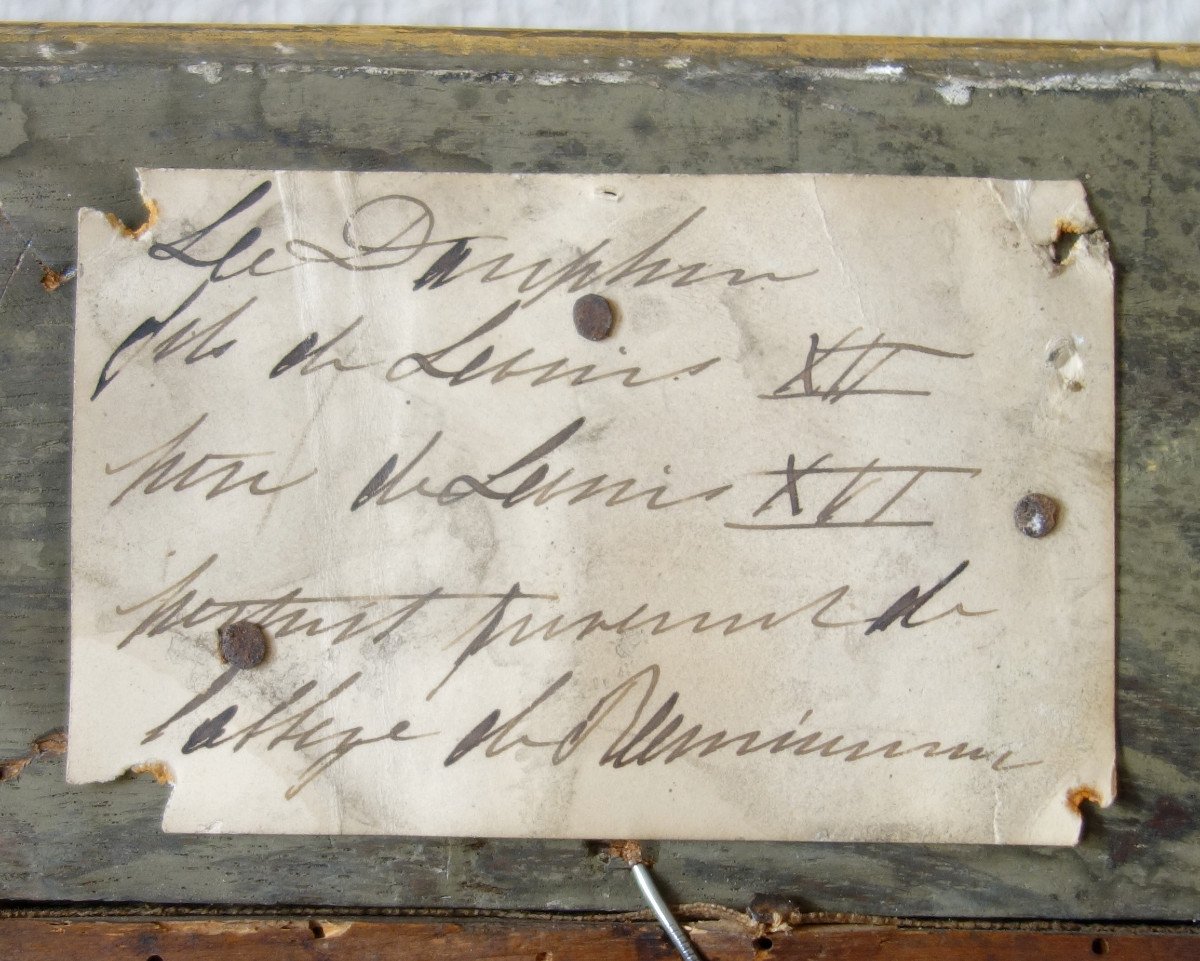 Le Dauphin
fils de Louis XV
père de Louis XVI
portrait provenant de
l'abbaye de